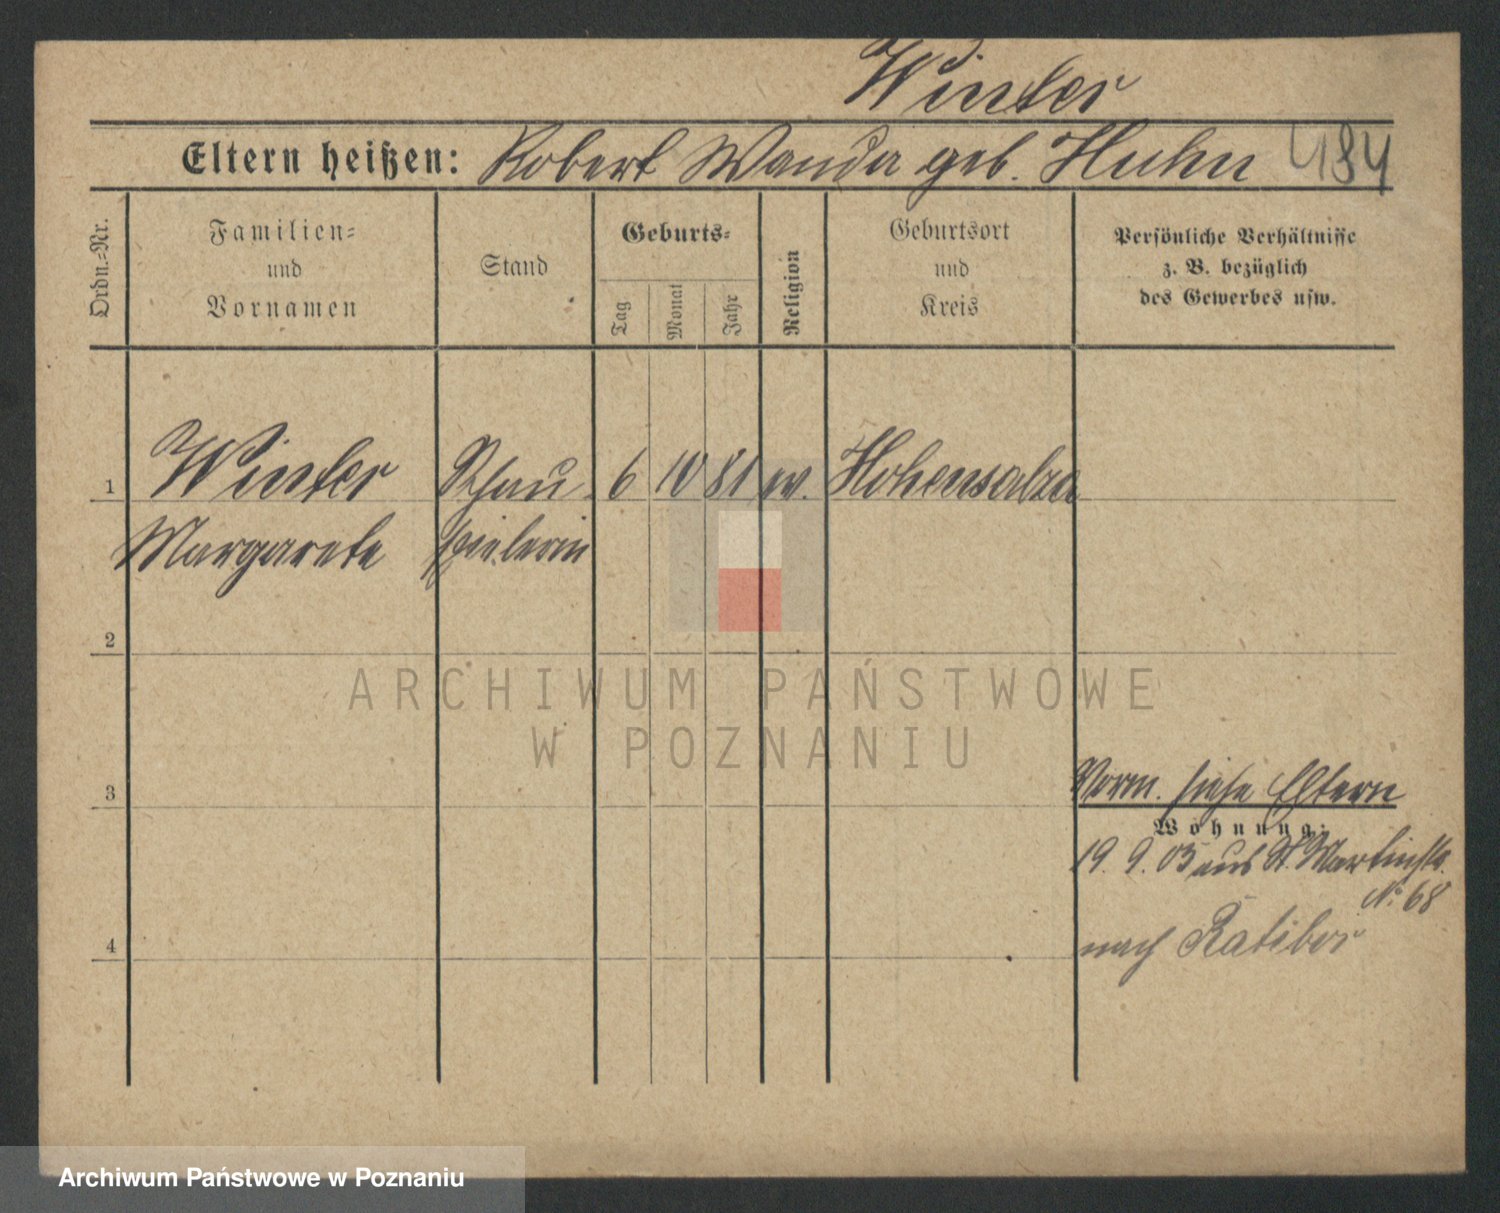 Winter
Eltern heißen: Robert Wanda geb. Huhn 484
Ordn.=Nr.
Familien= und Vornamen
Stand
Geburts=
Tag
Monat
Jahr
Religion
Geburtsort und Kreis
Persönliche Verhältnisse
z. B. bezüglich
des Gewerbes usw.
1 Winter Schau 6 10 81 ev. Hohensalza
Margarete spielerin
2
3
Vorm. siehe Eltern
Wohnung:
19. 9. 05 aus St. Martinstr.
No 68
4 nach Ratibor
ARCHIWUM PAŃSTWOWE
W POZNANIU
Archiwum Państwowe w Poznaniu